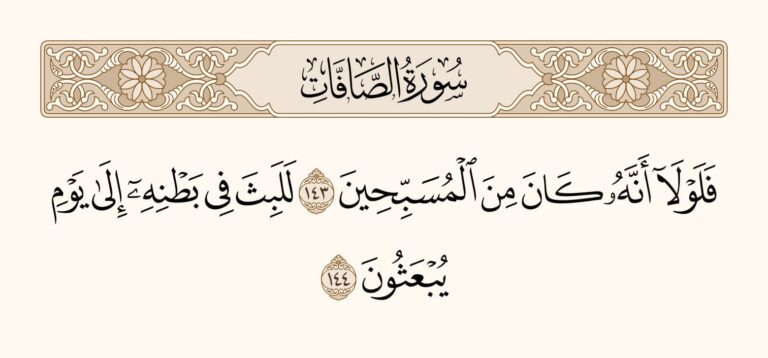 سُورَةُ الصَّافَّاتِ
فَلَوْلَآ أَنَّهُۥ كَانَ مِنَ ٱلْمُسَبِّحِينَ ١٤٣ لَلَبِثَ فِى بَطْنِهِۦٓ إِلَىٰ يَوْمِ
يُبْعَثُونَ ١٤٤